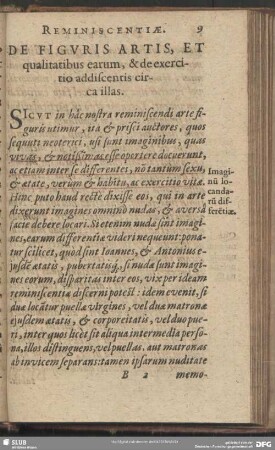 REMINISCENTIÆ. 9
DE FIGVRIS ARTIS, ET
qualitatibus earum, & de exerci-
tio addiscentis cir-
ca illas.
SICVT in hâc nostra reminiscendi arte fi-
guris utimur, ita & prisci auctores, quos
sequuti neoterici, usi sunt imaginibus, quas
vivas, & notissimas esse oportere docuerunt,
ac etiam inter se differentes, nō tantum sexu,
& ætate, verum & habitu, ac exercitio vitæ.
Hinc puto haud recte dixisse eos, qui in arte
dixerunt imagines omnino nudas, & aversâ
facie debere locari. Si etenim nudæ sint imagi-
nes, earum differentiæ videri nequeunt: pona-
tur scilicet, quod sint Ioannes, & Antonius e-
jusdē ætatis, pubertatisq́, si nudæ sunt imagi-
nes eorum, disparitas inter eos, vix per ideam
reminiscentiæ discerni potest: idem evenit, si
duæ locētur puellæ virgines, vel duæ matronæ
ejusdem ætatis, & corporeitatis, vel duo pue-
ri, inter quos licèt sit aliqua intermedia perso-
na, illos distinguens, vel puellas, aut matronas
ab invicem separans: tamen ipsarum nuditate
Imagi-
nū lo-
canda-
rū dif-
ferētiæ.
B 2 memo-
SLUB
DFG